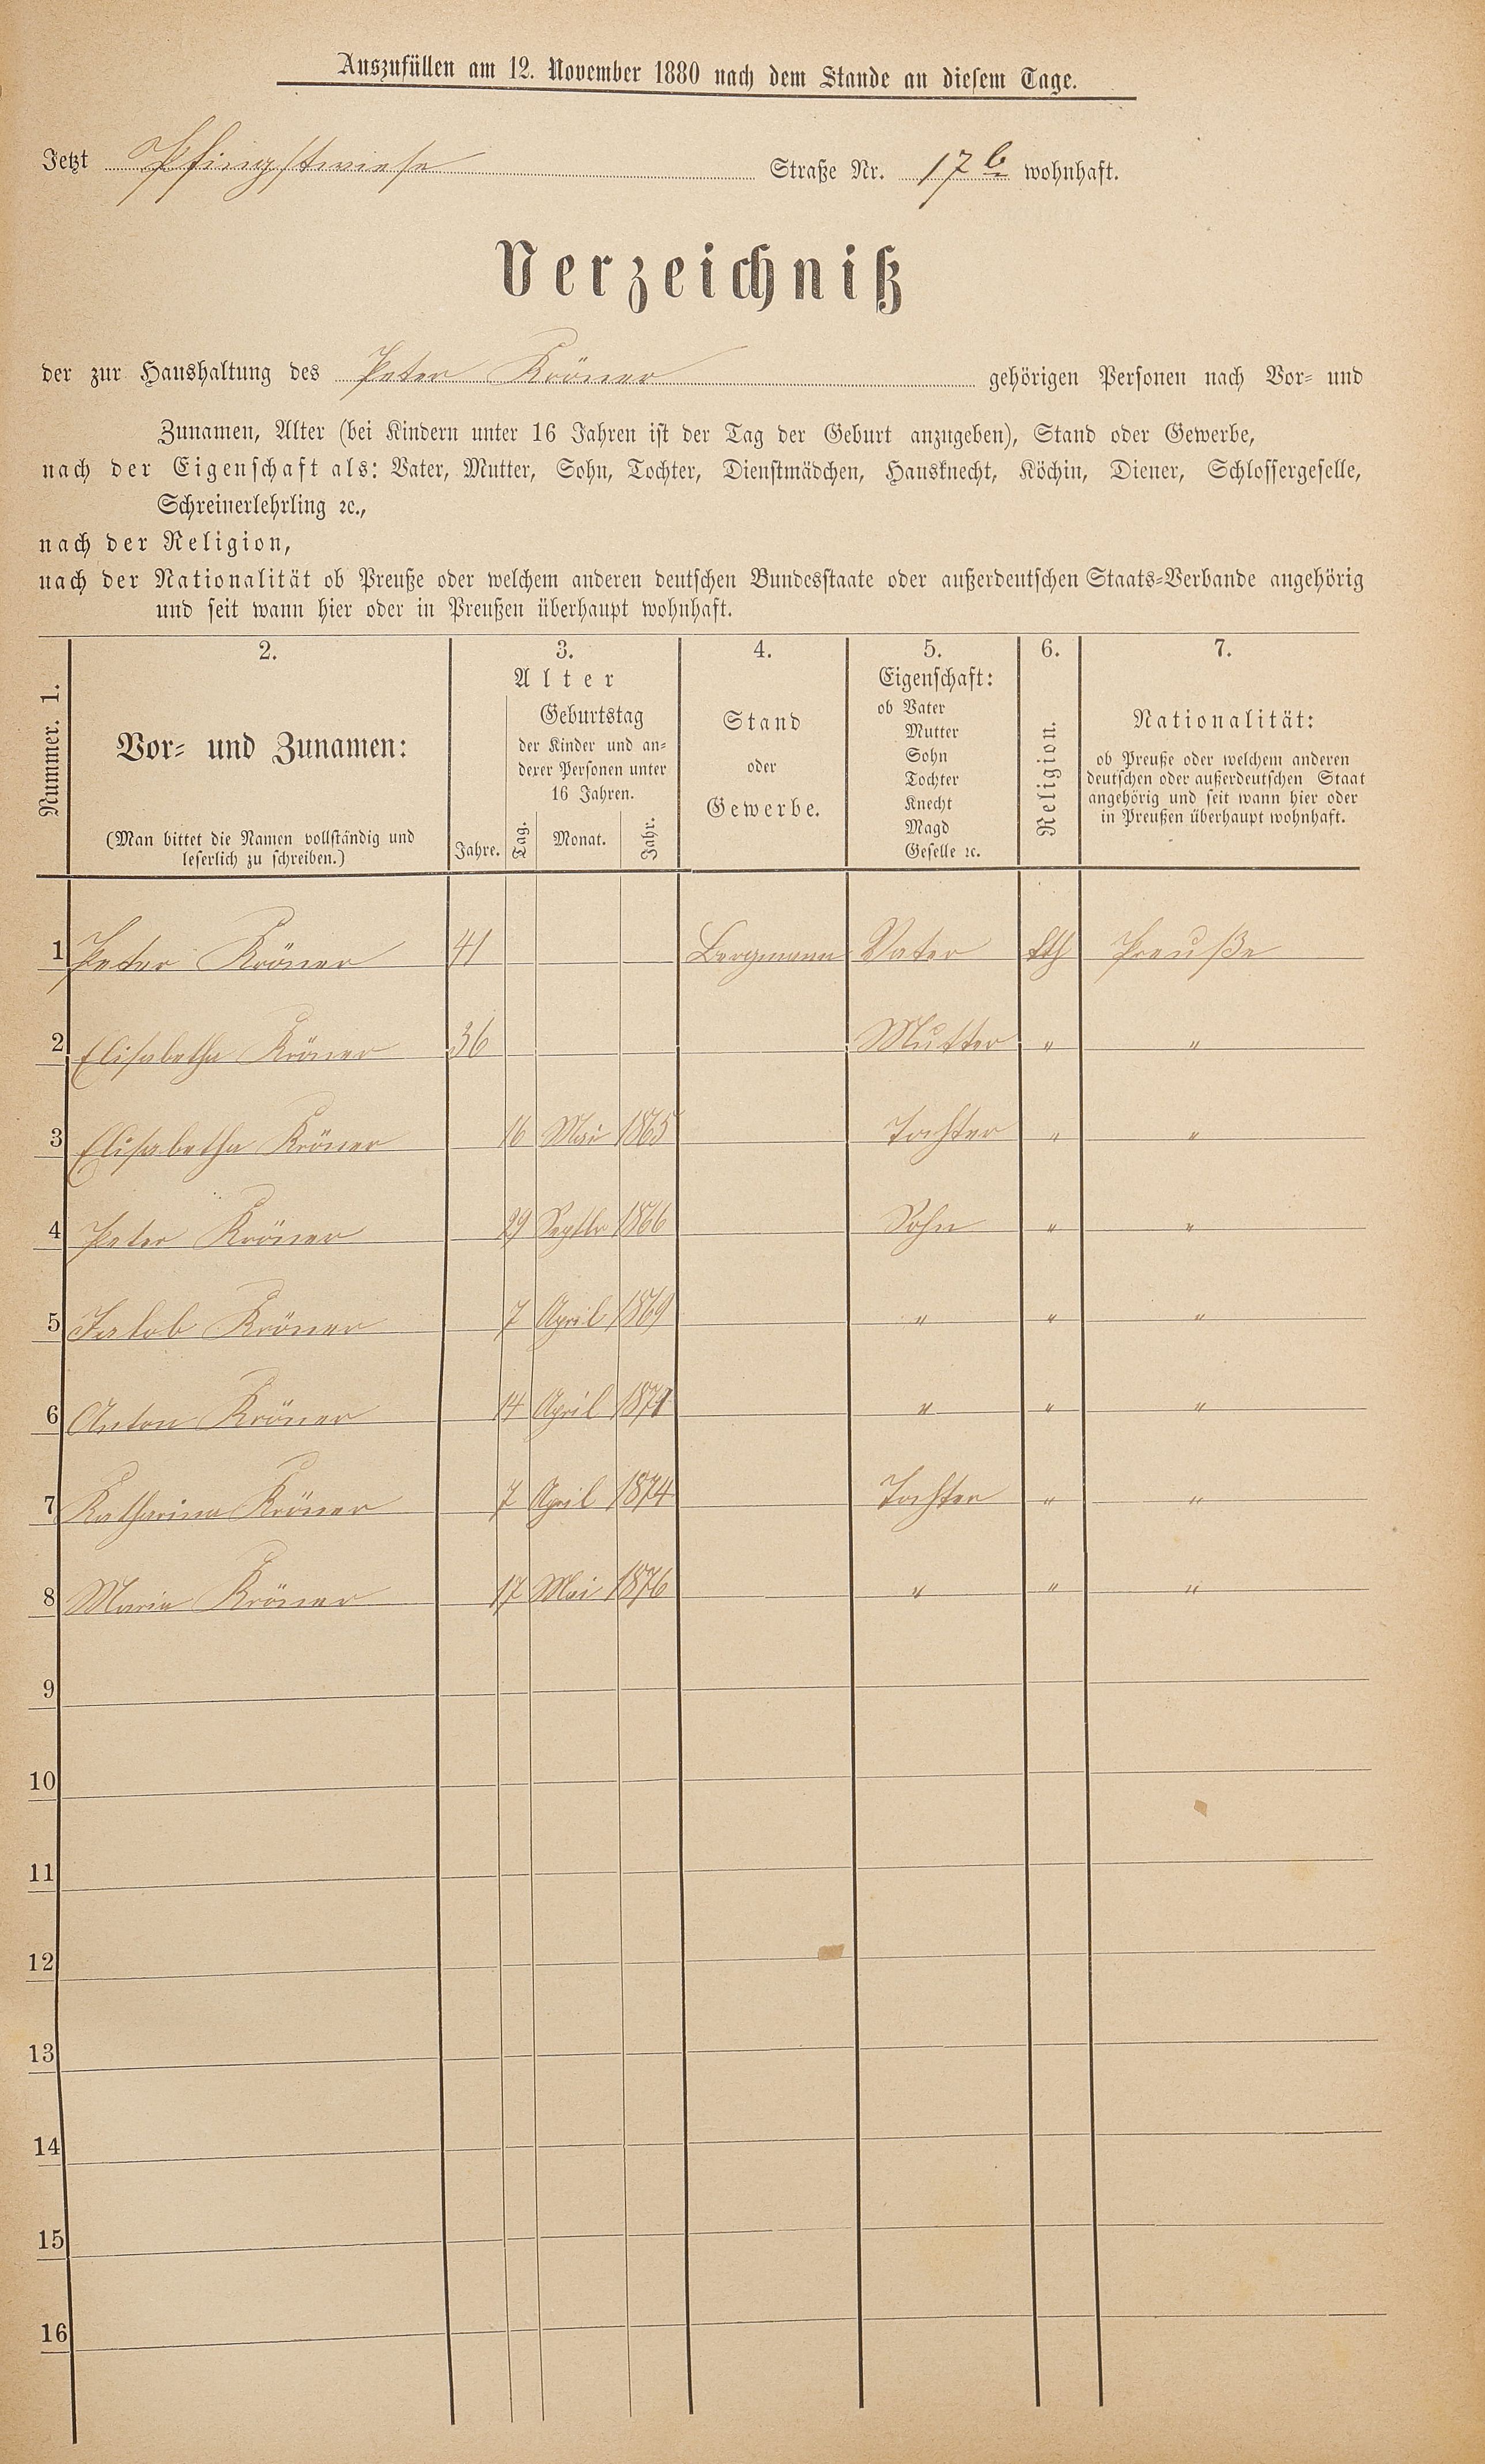 Auszufüllen am 12. November 1880 nach dem Stande an diesem Tage.
Jetzt Pfingstwiese Straße Nr. 17 b wohnhaft.
Verzeichniß
der zur Haushaltung des Peter Kröner gehörigen Personen nach Vor- und
Zunamen, Alter (bei Kindern unter 16 Jahren ist der Tag der Geburt anzugeben), Stand oder Gewerbe,
nach der Eigenschaft als: Vater, Mutter, Sohn, Tochter, Dienstmädchen, Hausknecht, Köchin, Diener, Schlossergeselle,
Schreinerlehrling ꝛc.,
nach der Religion,
nach der Nationalität ob Preuße oder welchem anderen deutschen Bundesstaate oder außerdeutschen Staats-Verbande angehörig
und seit wann hier oder in Preußen überhaupt wohnhaft.
Nummer. 1.
2.
Vor- und Zunamen:
(Man bittet die Namen vollständig und
leserlich zu schreiben.)
3.
Alter
Jahre.
Geburtstag
der Kinder und an-
derer Personen unter
16 Jahren.
Tag. Monat. Jahr.
4.
Stand
oder
Gewerbe.
5.
Eigenschaft:
ob Vater
Mutter
Sohn
Tochter
Knecht
Magd
Geselle ꝛc.
6.
Religion.
7.
Nationalität:
ob Preuße oder welchem anderen
deutschen oder außerdeutschen Staat
angehörig und seit wann hier oder
in Preußen überhaupt wohnhaft.
1 Peter Kröner 41 Bergmann Vater kth Preuße
2 Elisabetha Kröner 36 Mutter " "
3 Elisabetha Kröner 16 Mai 1865 Tochter " "
4 Peter Kröner 29 Septbr 1866 Sohn " "
5 Jakob Kröner 7 April 1869 " " "
6 Anton Kröner 14 April 1871 " " "
7 Katharina Kröner 7 April 1874 Tochter " "
8 Maria Kröner 17 Mai 1876 " " "
9
10
11
12
13
14
15
16